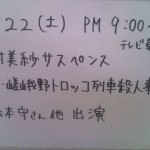 22(土) PM 9:00~
テレビ朝
村美紗サスペンス
嵯峨野トロッコ列車殺人事
木守さん他 出演